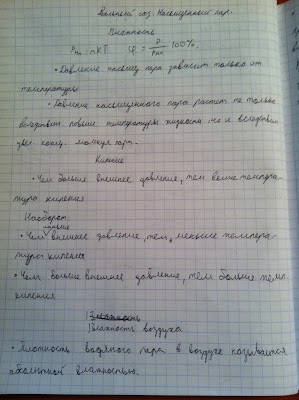 Реальный газ. Насыщенный пар.
Влажность
Pнп = nkT φ = P/Pнп · 100%.
• Давление насыщ пара зависит только от
температуры.
• Давление насыщенного пара растёт не только
вследствии повыш. температуры жидкости но и вследствии
увел. конц. молекул пара.
Кипение
• Чем больше внешнее давление, тем больше темпера-
тура кипения
Наоборот:
• Чем меньше внешнее давление, тем меньше темпера-
тура кипения
• Чем больше внешнее давление, тем больше темп.
кипения
Влажность воздуха
• Плотность водяного пара в воздухе называется
абсолютной влажностью.